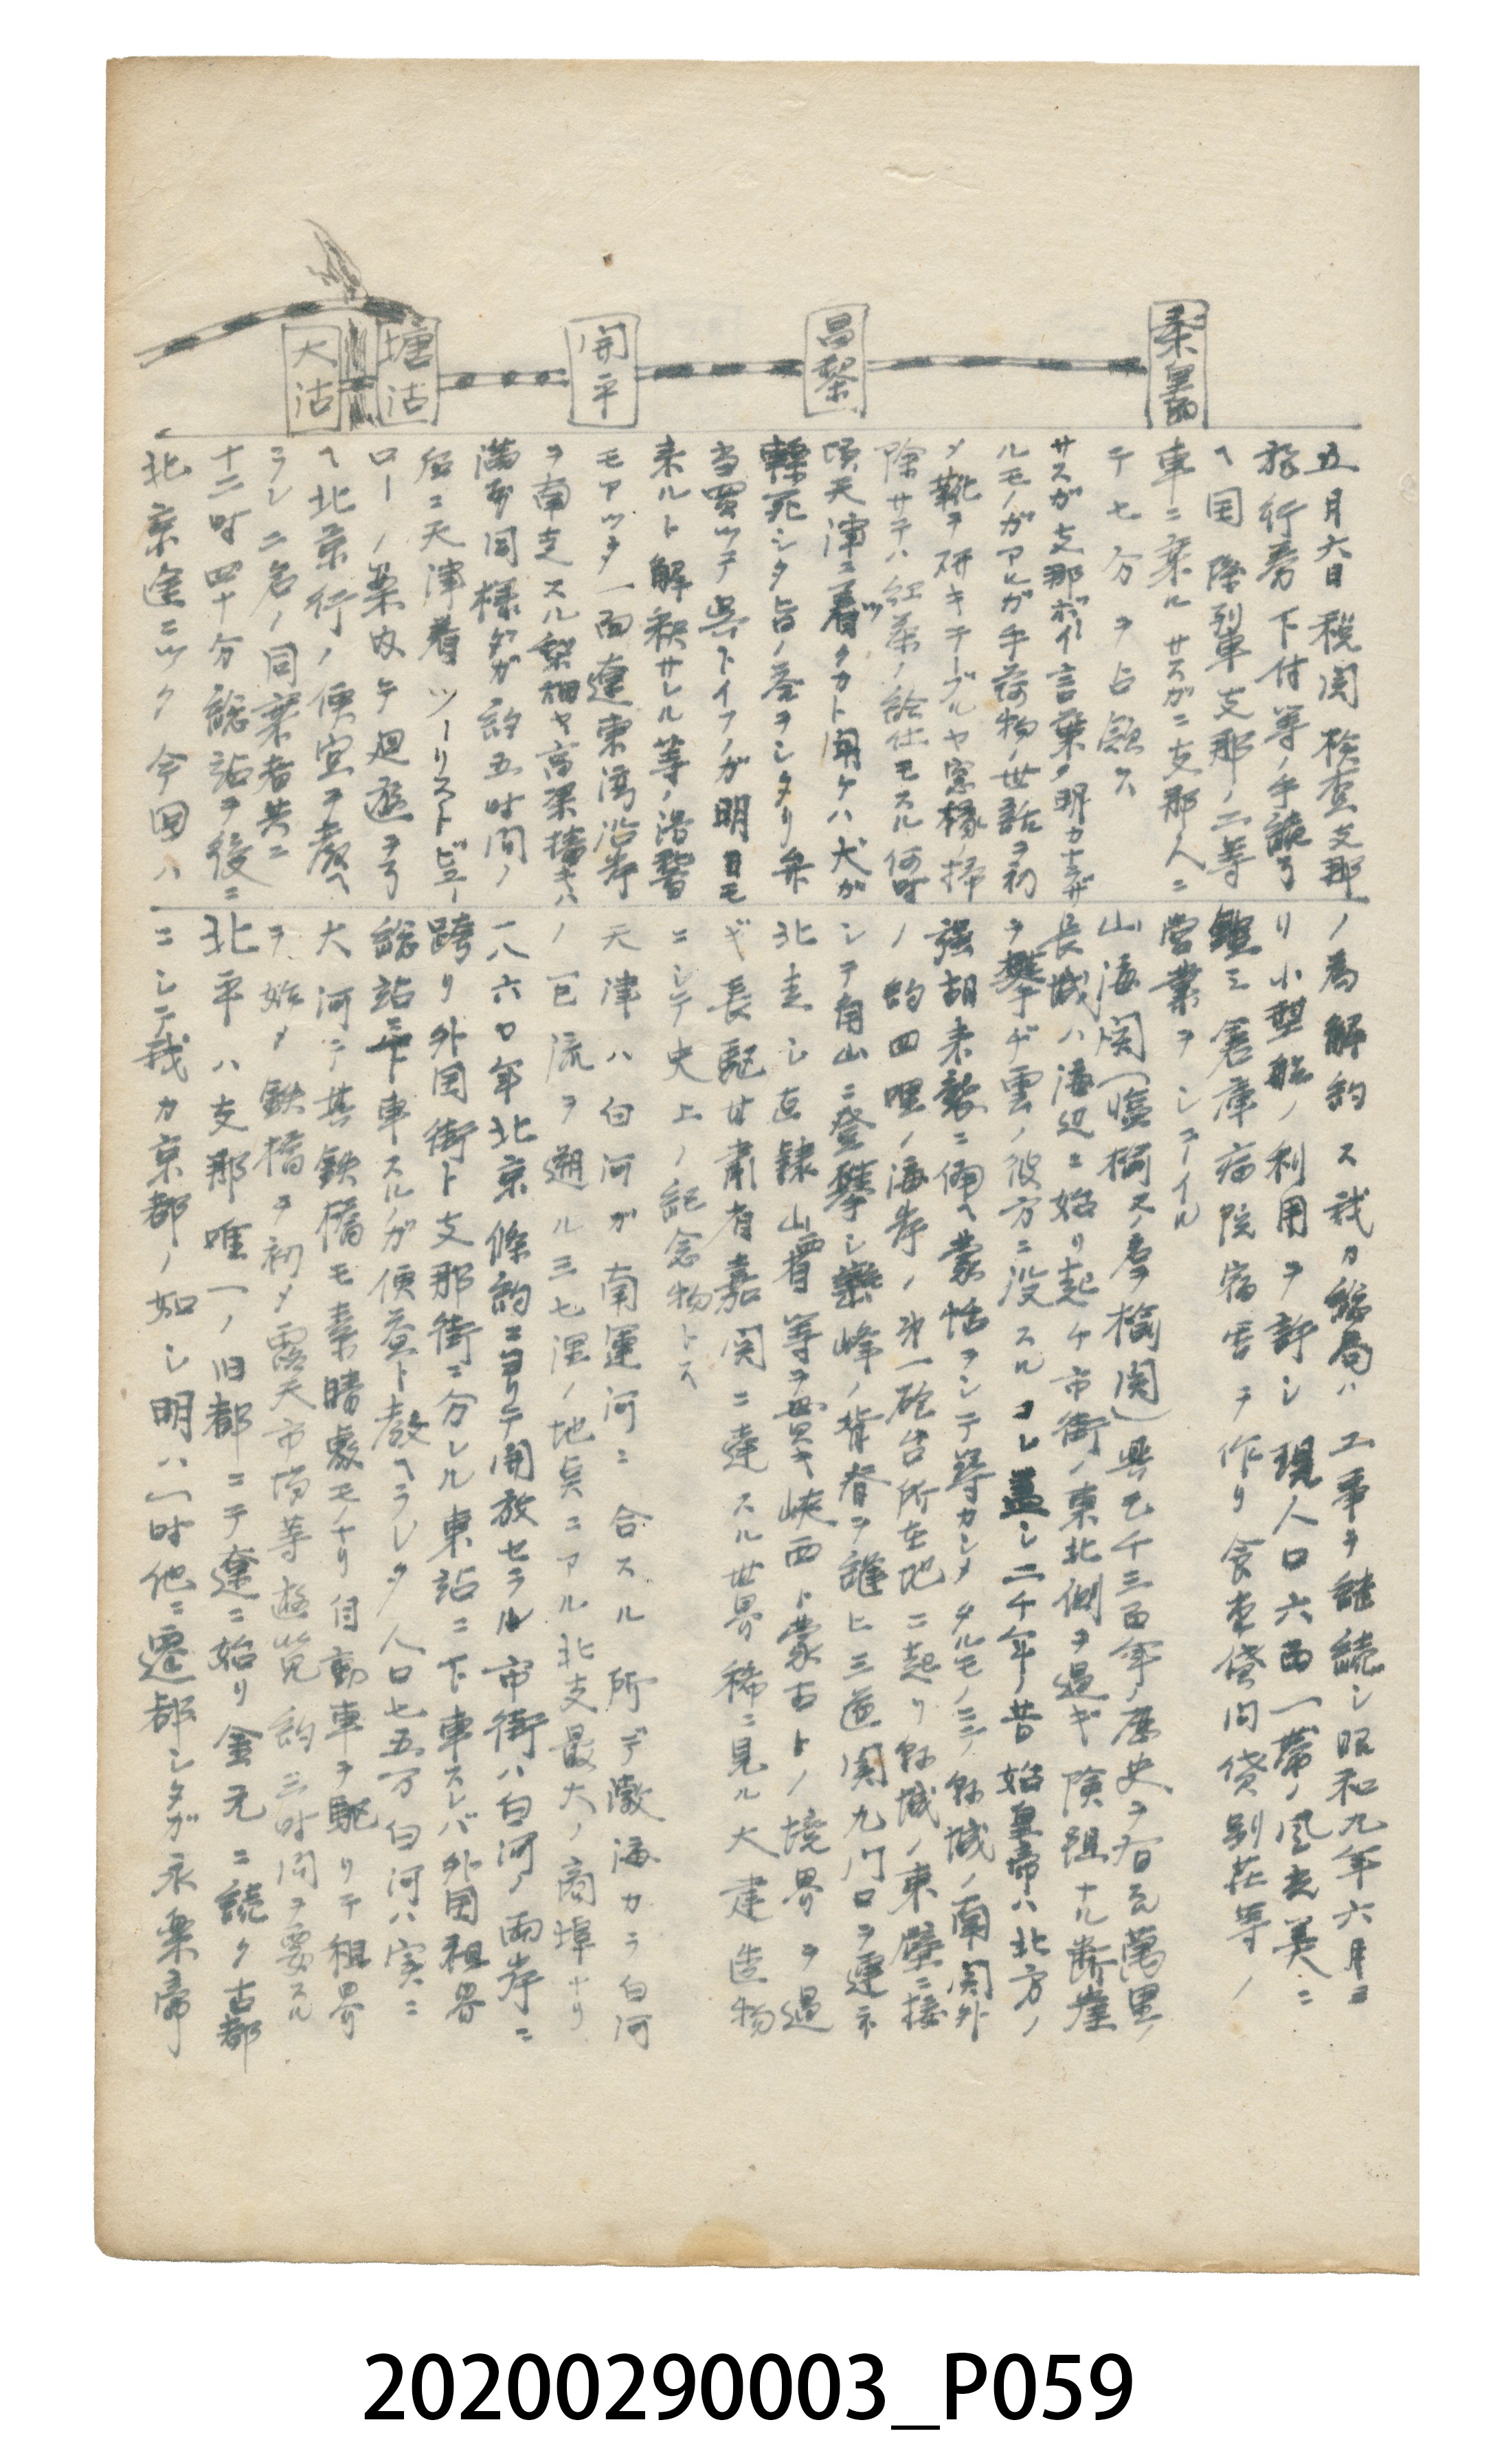 秦皇島
昌黎
開平
塘沽
大沽
五月六日税関検査支那
旅行券下付等ノ手續ヲ了
ヘ国際列車支那ノ二等
車ニ乗ル サスガニ支那人ニ
テ七分ヲ占領ス
サスガ支那ボーイ言葉ノ明カナラザ
ルモノガアルガ手荷物ノ世話ヲ初
メ靴ヲ研キテーブルヤ窓橼ノ掃
除サテハ紅茶ノ給仕モスル何時
頃天津ニ着クカト聞ケハ犬ガ
轢死シタ旨ノ答ヲシタリ弁
当買ッテ呉レトイフノガ明日モ
来ルト解釈サレル等ノ滑稽
モアッタ一面遼東湾沿岸
ヲ南走スル梨畑ヤ高梁播キハ
満洲同様ダガ約五時間ノ
后ニ天津着 ツーリストビュー
ローノ案内デ廻遊ヲ了
ヘ北京行ノ便宜ヲ教ヘ
ラレ二名ノ同業者共ニ
十二時四十分総站ヲ後ニ
北京途ニツク今回ハ
ノ為解約ス我カ総局ハ 工事ヲ継続シ昭和九年六月ヨ
リ小型船ノ利用ヲ許シ 現人口六百一帯ノ風光美ニ
鑑ミ倉庫病院宿舎ヲ作リ食堂貸间貸別荘等ノ
営業ヲシテイル
山海関(臨榆又ノ名ヲ榆関)興亡千三百年ノ歴史ヲ有ス萬里ノ
長城ハ海辺ニ始リ起チ市街ノ東北側ヲ過ギ険阻ナル断崖
ヲ攀ヂ雲ノ彼方ニ没スル コレ蓋シ二千年ノ昔始皇帝ハ北方ノ
强胡来襲ニ備ヘ蒙恬ヲシテ築カシメタルモノニテ 城ノ南関外
ノ約四哩ノ海岸ノ第一砲台所在地ニ起リ 城ノ東壁ニ接
シテ角山ニ登攀シ巒峰ノ背脊ヲ縫ヒ三道関九门口ヲ連ネ
北走シ直隷山西省等ヲ貫キ峡西ト蒙古トノ境界ヲ過
ギ長駆甘肅省嘉 関ニ達スル世界稀ニ見ル大建造物
ニシテ史上ノ記念物トス
天津ハ白河ガ南運河ニ 合スル 所デ激海カラ白河
ノ一巨流ヲ遡ル三七浬ノ地点ニアル北支最大ノ商埠ナリ
一八六〇年北京條約ニヨリテ開放セラル市街ハ白河ノ両岸ニ
跨リ外国街ト支那街ニ分レル東站ニ下車スレバ外国租界
総站ニ下車スルノガ便益ト教ヘラレタ人口七五万白河ハ実ニ
大河デ其鉄橋モ素晴敷モノナリ自動車ヲ駆リテ租界
ヲ始メ鉄橋ヲ初メ露天市場等遊覧約三时间ヲ要スル
北平ハ支那唯一ノ旧都ニテ遼ニ始リ金元ニ続ク古都
ニシテ我カ京都ノ如シ明ハ一时他ニ遷都シタガ永楽帝
20200290003_P059